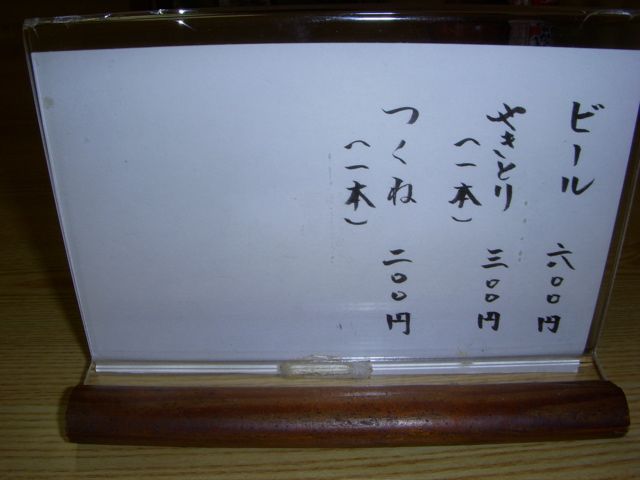 ビール 六〇〇円
やきとり 三〇〇円
(一本)
つくね 二〇〇円
(一本)